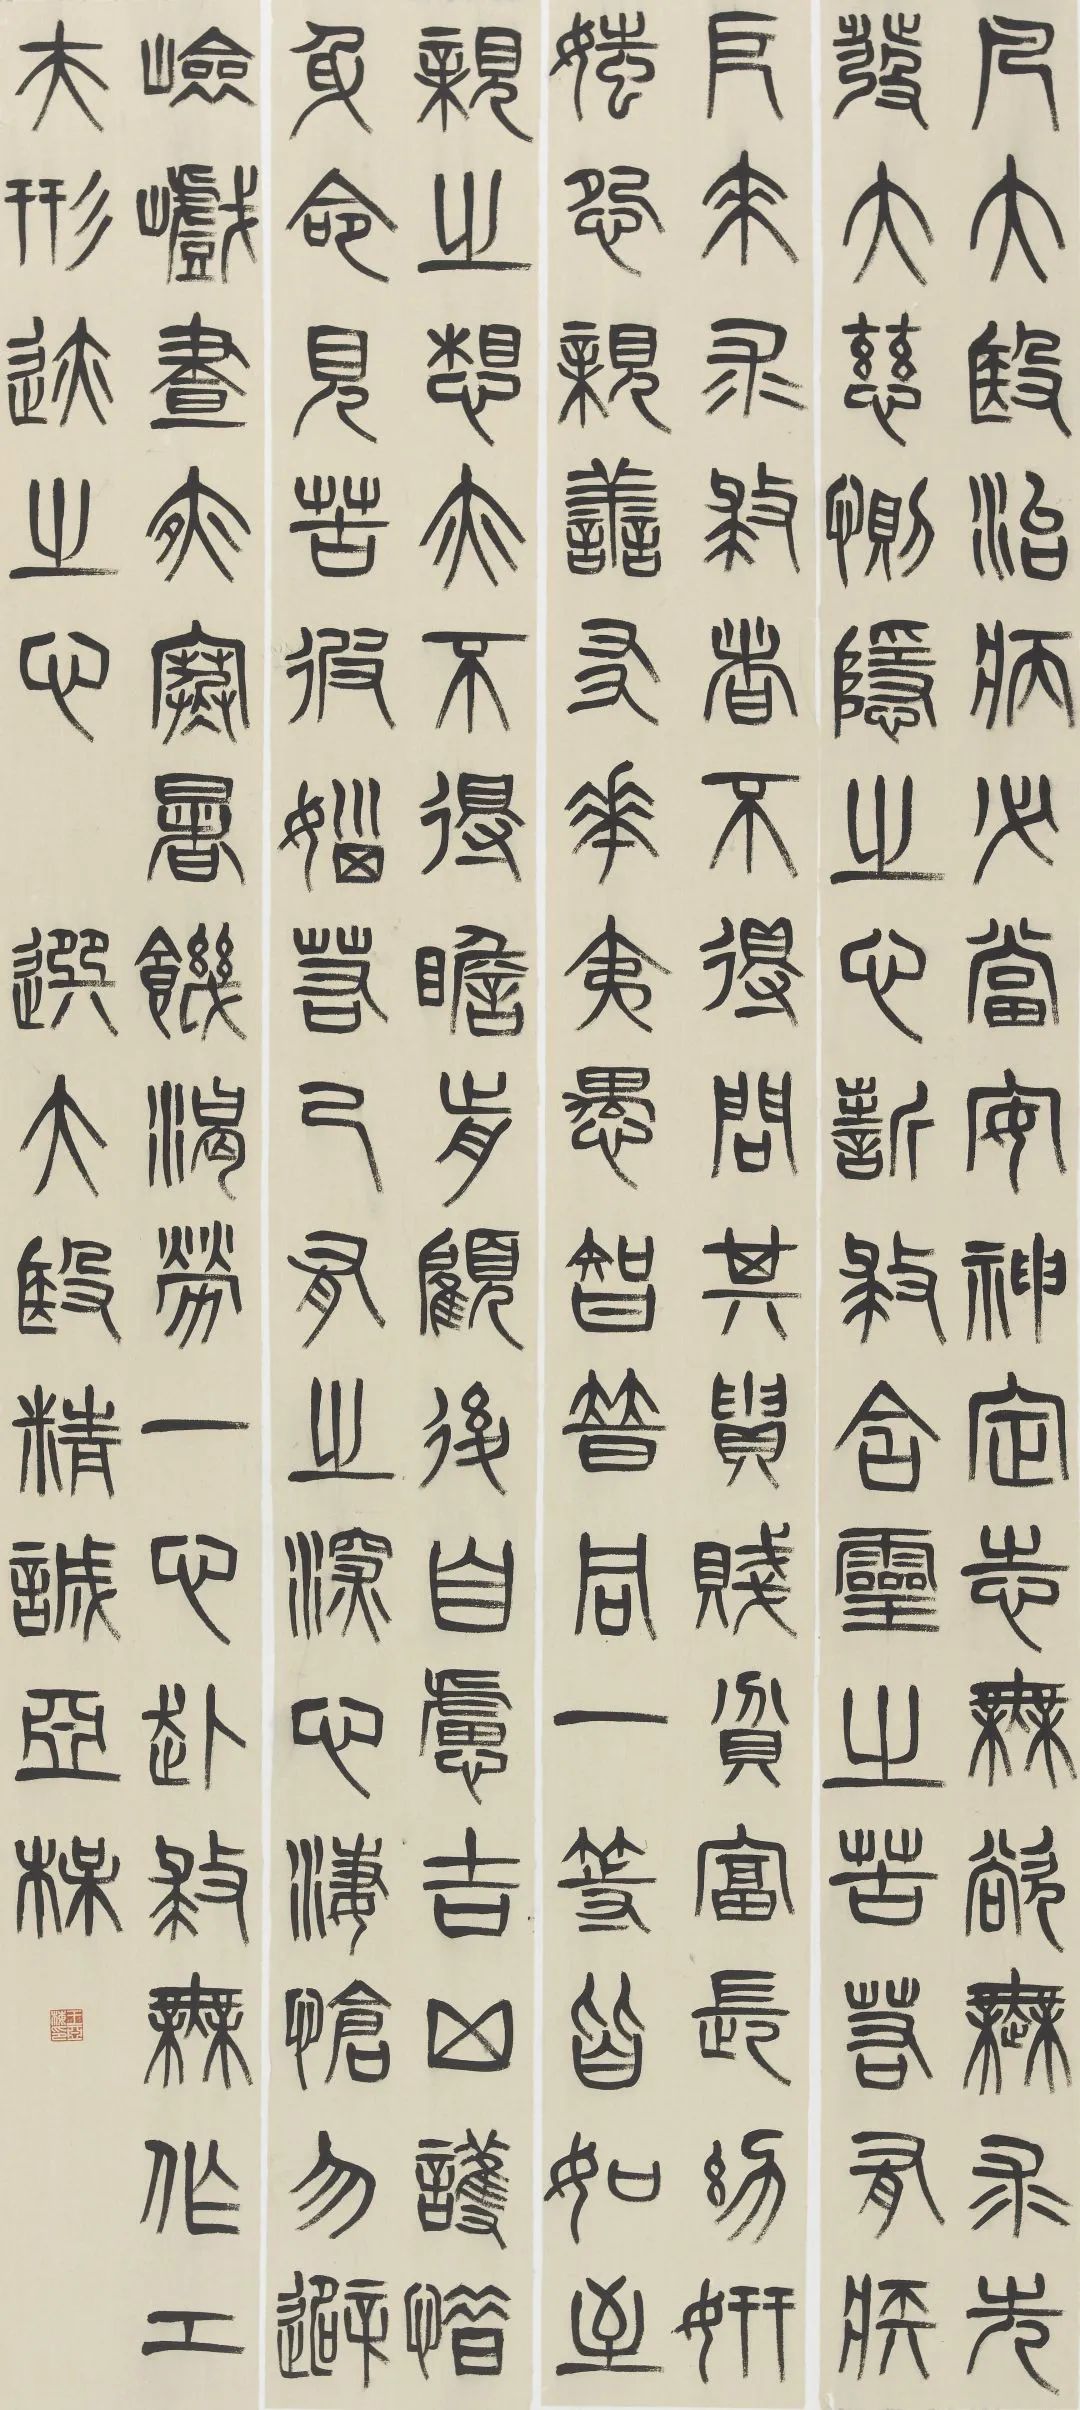 凡大醫治病必當安神定志無欲無求先
發大慈惻隱之心誓救含靈之苦若有疾
厄來求救者不得問其貴賤貧富長幼妍
媸怨親善友華夷愚智普同一等皆如至
親之想亦不得瞻前顧後自慮吉凶護惜
身命見苦彼惱若己有之深心淒愴勿避
嶮巇晝夜寒暑饑渴勞一心赴救無作工
夫形迹之心 選大醫精誠亞